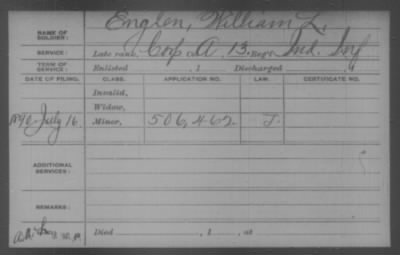 NAME OF SOLDIER: Englen, William L.
SERVICE: Late rank, Corp Co. A, 13 Reg't Ind. Inf
TERM OF SERVICE: Enlisted , 1 Discharged , 1
DATE OF FILING. CLASS. APPLICATION NO. LAW. CERTIFICATE NO.
Invalid,
Widow,
1890 July 16 Minor, 506,462 J.
ADDITIONAL SERVICES:
REMARKS:
Died , 1 , at